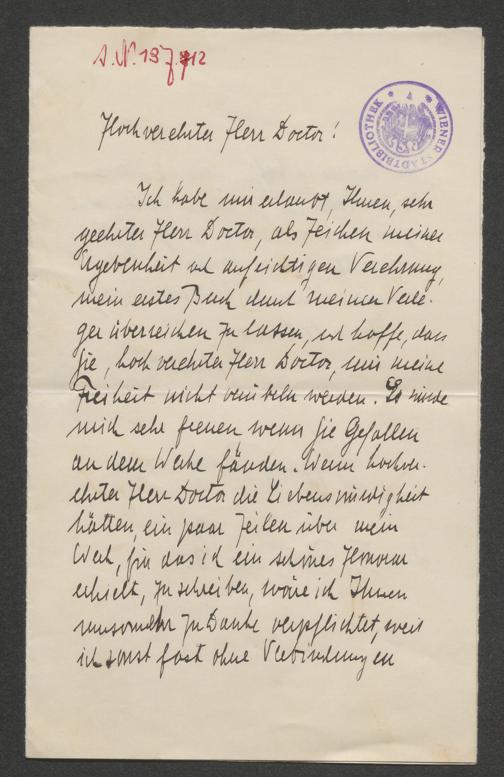 J.N. 137.912
WIENER STADTBIBLIOTHEK
Hochverehrter Herr Doctor!
Ich habe mir erlaubt, Ihnen, sehr
geehrter Herr Doctor, als Zeichen meiner
Ergebenheit und aufrichtigen Verehrung,
mein erstes Buch durch meinen Verle-
ger überreichen zu lassen, und hoffe, dass
Sie, hochverehrter Herr Doctor, mir meine
Freiheit nicht verübeln werden. Es würde
mich sehr freuen wenn Sie Gefallen
an dem Werke fänden. Wenn hochver-
ehrter Herr Doctor die Liebenswürdigkeit
hätten, ein paar Zeilen über mein
Werk, für das ich ein schönes Honorar
erhielt, zu schreiben, wäre ich Ihnen
umsomehr zu Danke verpflichtet, weil
ich sonst fast ohne Verbindungen